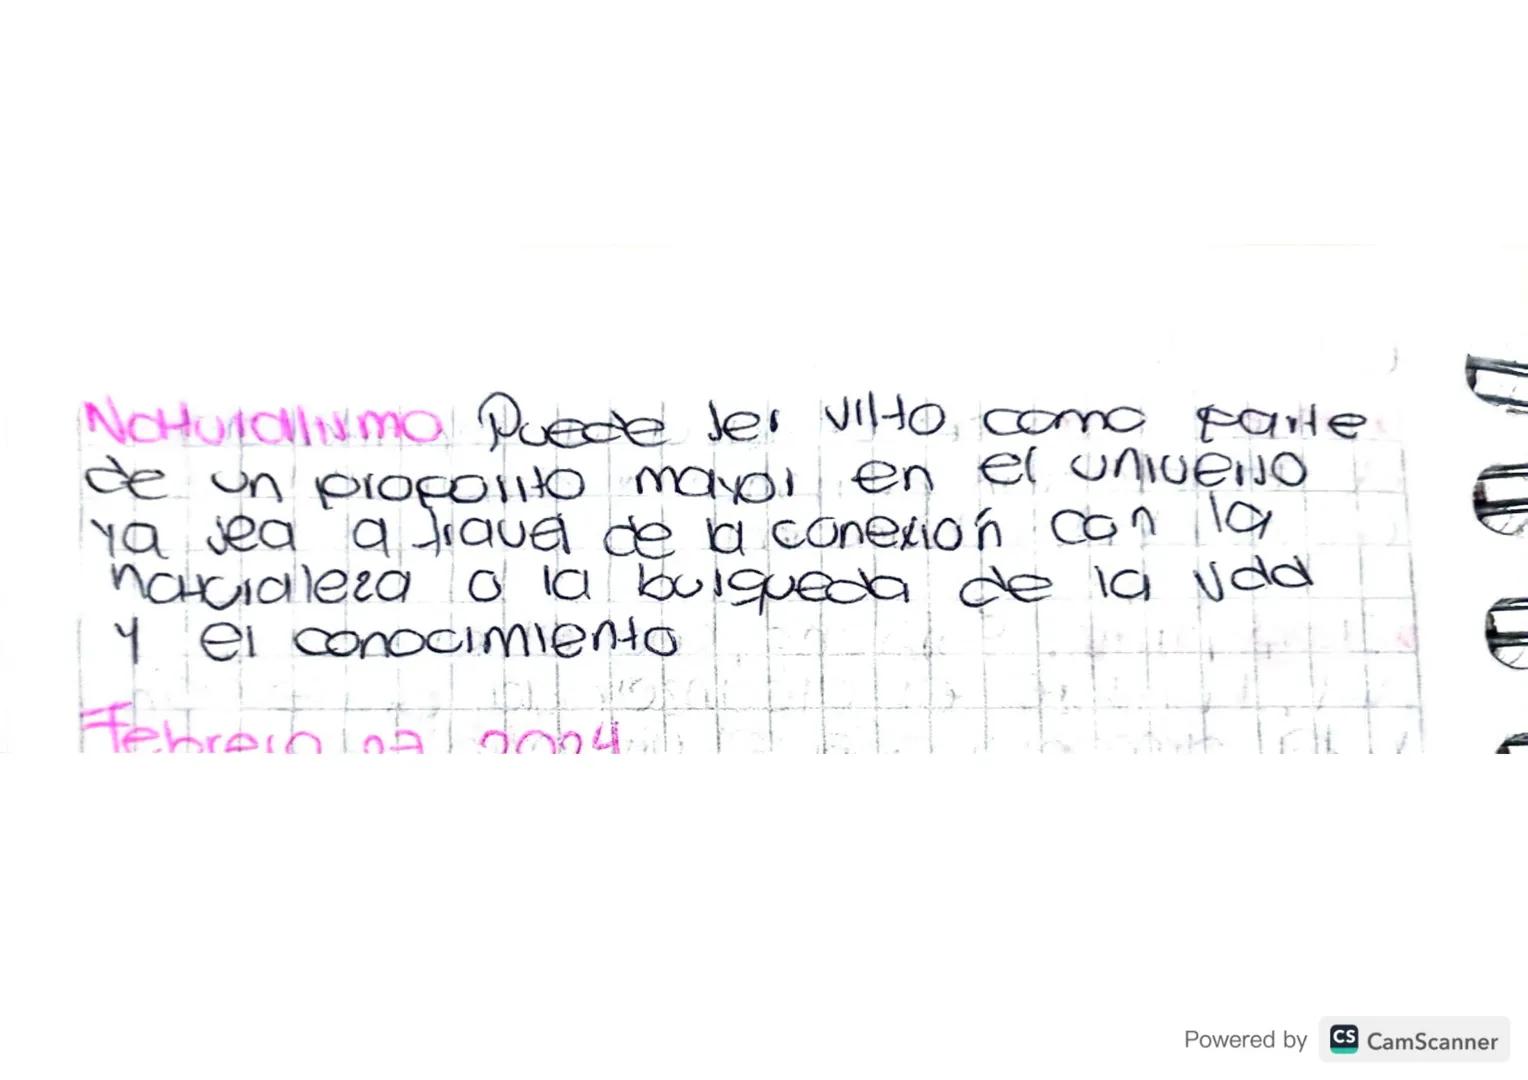 Naturalismo Puede ser visto como parte
de un proposito mayor en el universo
ya sea a traves de la conexión con la
naturaleza o la busqueda de la vdd
y el conocimiento
Febrero 2024
Powered by CS CamScanner